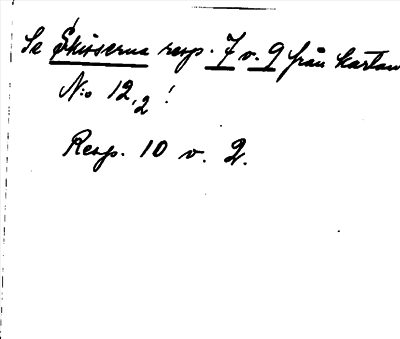 Se Skisserna resp. 7 v. 9 från kartan
N:o 12,2!
Resp. 10 v. 2.